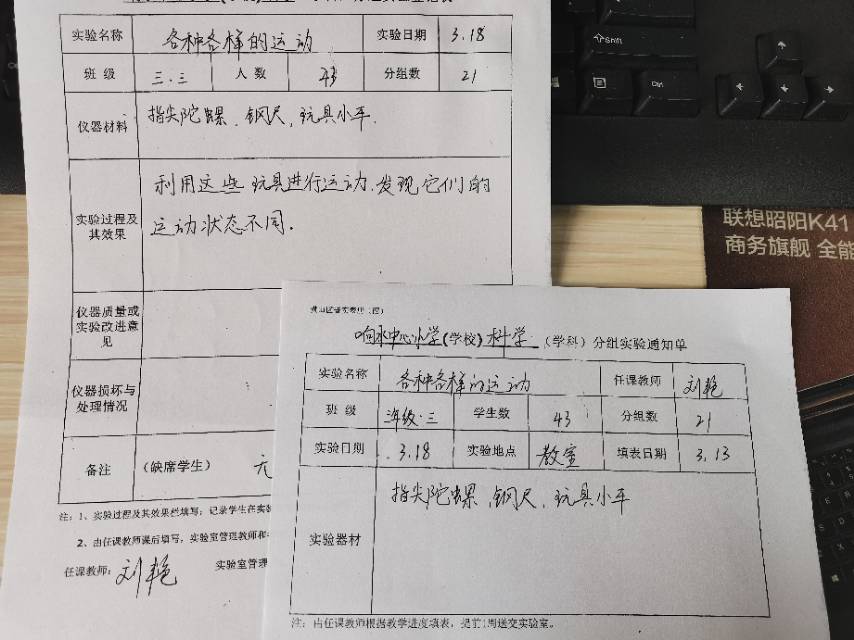 实验名称 各种各样的运动 实验日期 3.18
班 级 三.三 人 数 43 分组数 21
仪器材料 指尖陀螺、钢尺、玩具小车.
实验过程及其效果 利用这些玩具进行运动.发现它们的
运动状态不同.
仪器质量或
实验改进意
见
仪器损坏与
处理情况
备注 (缺席学生) 无
注:1、实验过程及其效果栏填写:记录学生在实
2、由任课教师课后填写,实验室管理教师和
任课教师:刘艳 实验室管理
响水中心小学(学校)科学(学科)分组实验通知单
实验名称 各种各样的运动 任课教师 刘艳
班 级 三年级.三 学生数 43 分组数 21
实验日期 3.18 实验地点 教室 填表日期 3.13
实验器材 指尖陀螺、钢尺、玩具小车
注:由任课教师根据教学进度填表,提前1周送交实验室。
联想昭阳K41
商务旗舰 全能
⇧Shift
Ctrl